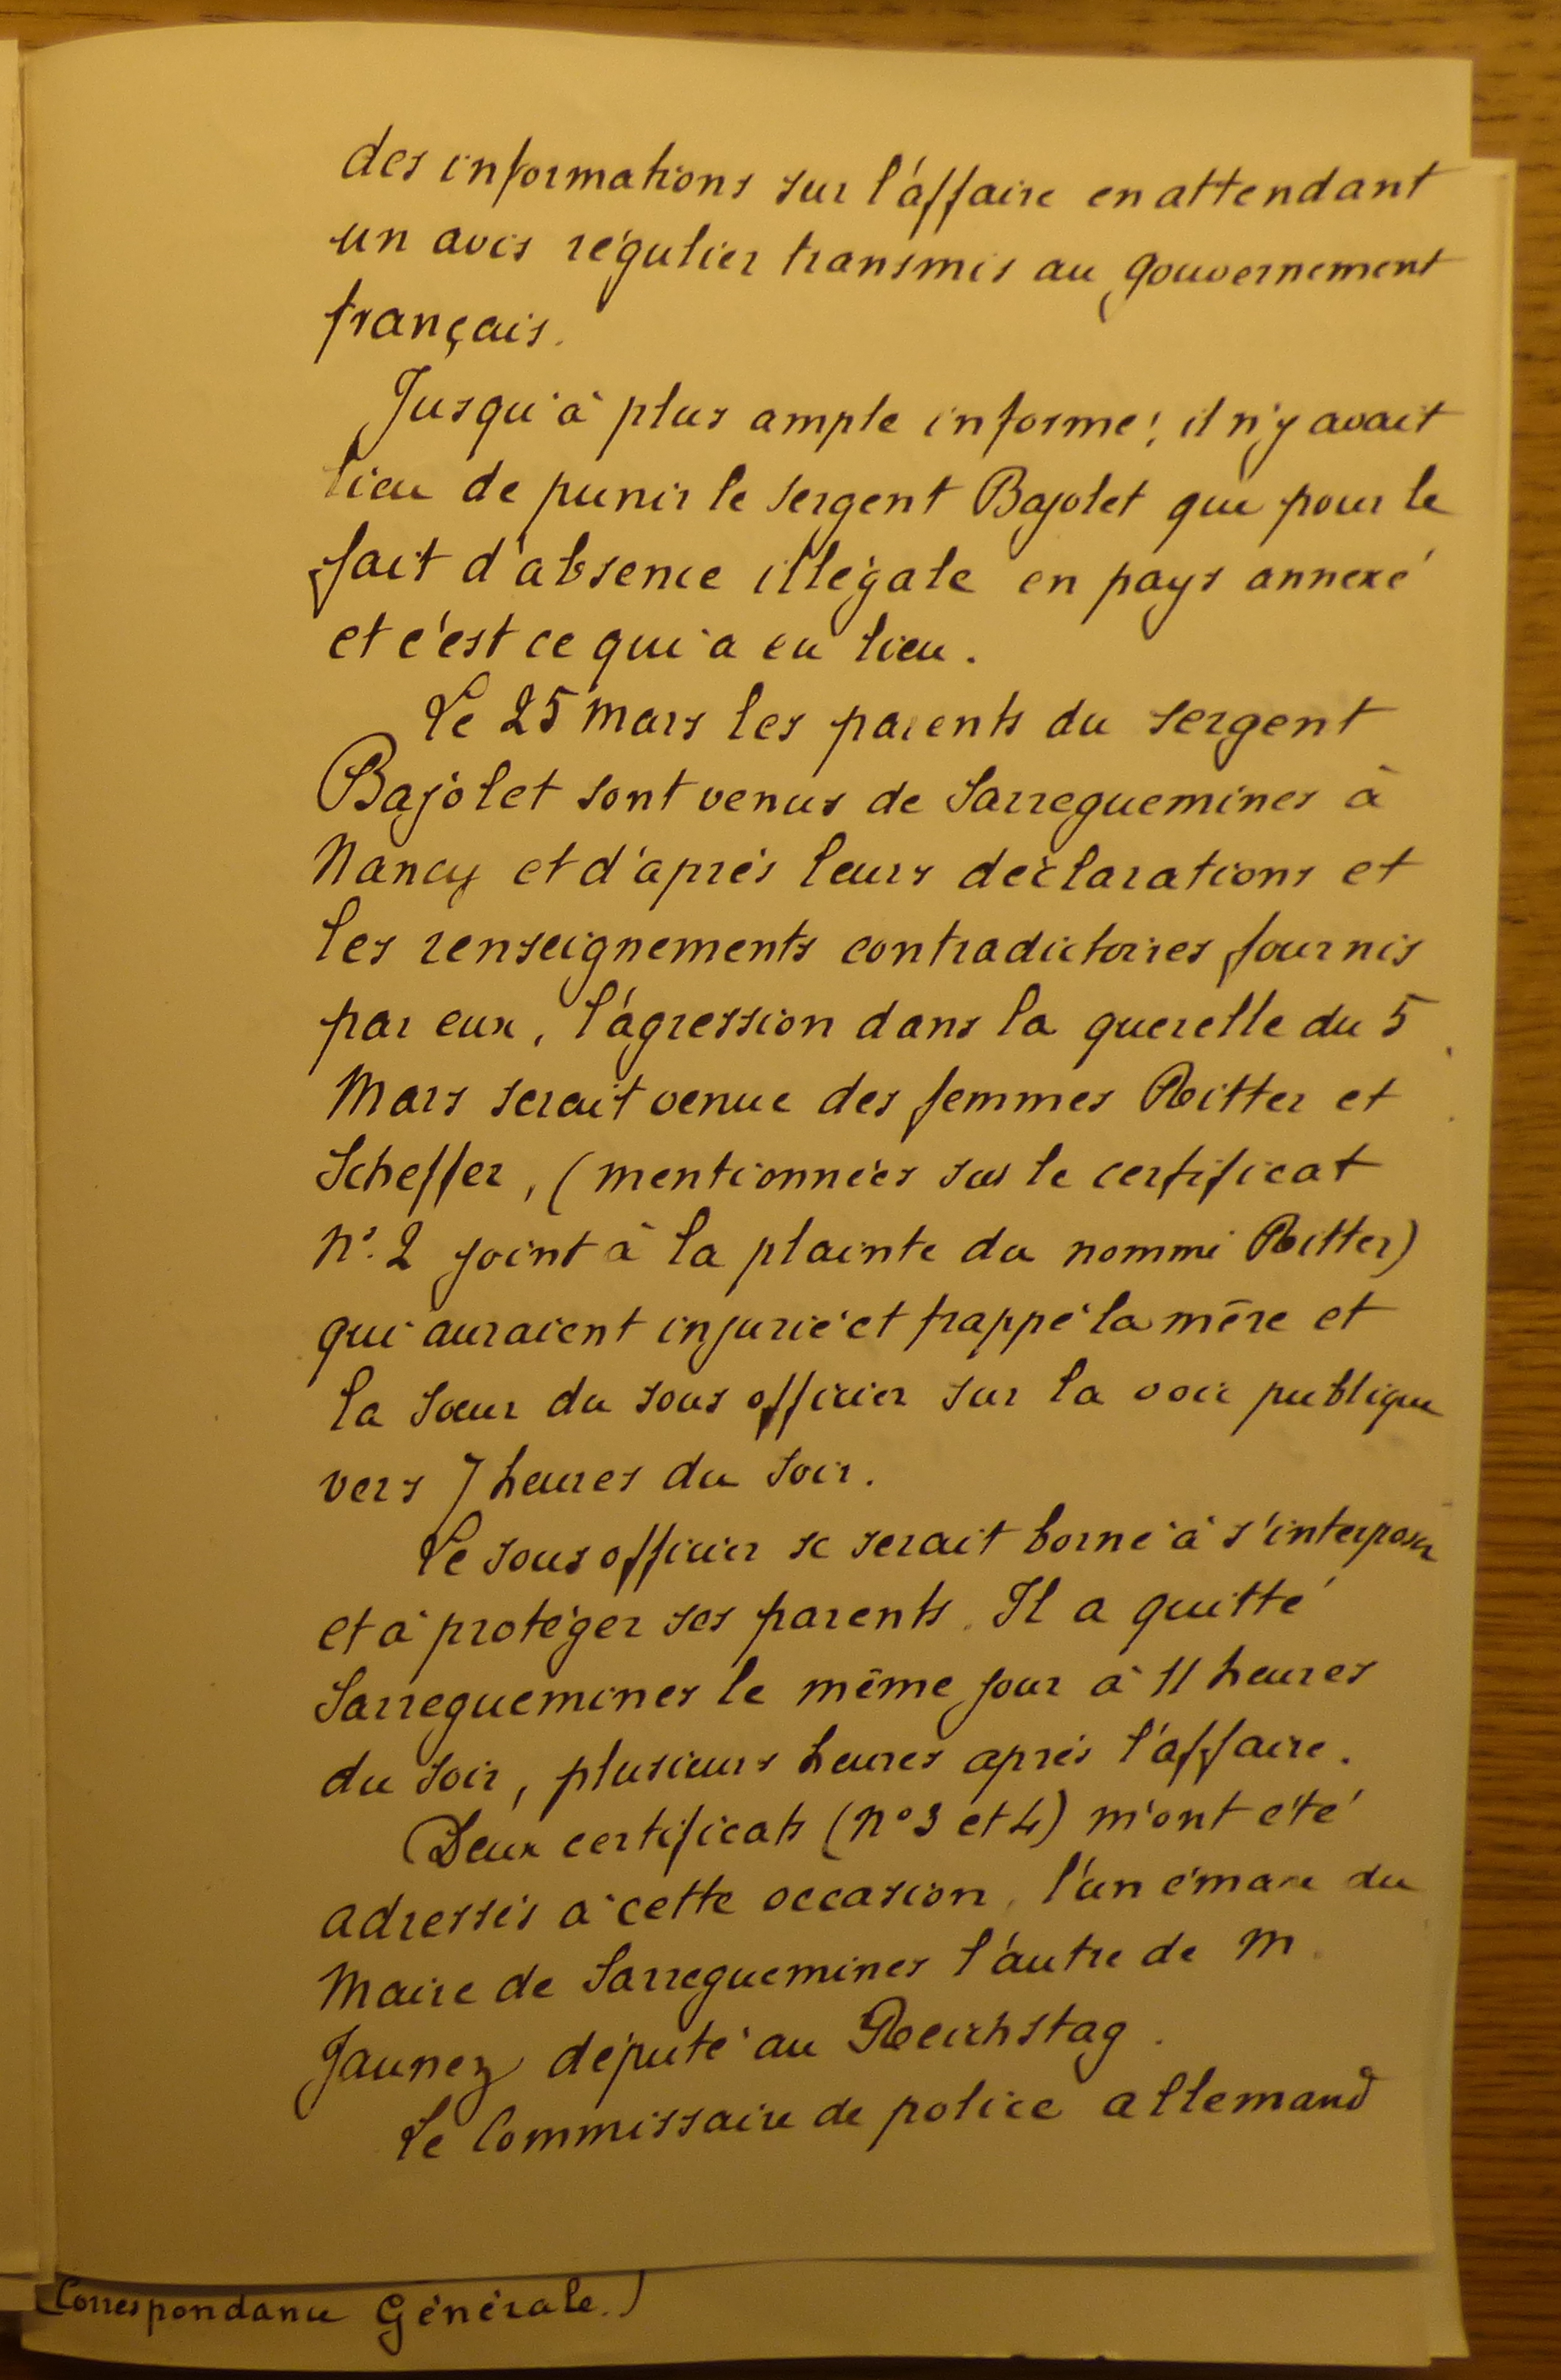 des informations sur l'affaire en attendant
un avis régulier transmis au gouvernement
français.
Jusqu'à plus ample informé, il n'y avait
lieu de punir le sergent Bajolet que pour le
fait d'absence illégale en pays annexé
et c'est ce qui a eu lieu.
Le 25 Mars les parents du sergent
Bajolet sont venus de Sarreguemines à
Nancy et d'après leurs déclarations et
les renseignements contradictoires fournis
par eux, l'agression dans la querelle du 5
Mars serait venue des femmes Ritter et
Scheffer, (mentionnées sur le certificat
N° 2 joint à la plainte du nommé Ritter)
qui auraient injurié et frappé la mère et
la sœur du sous officier sur la voie publique
vers 7 heures du soir.
Le sous officier se serait borné à s'interposer
et à protéger ses parents. Il a quitté
Sarreguemines le même jour à 11 heures
du soir, plusieurs heures après l'affaire.
Deux certificats (N° 3 et 4) m'ont été
adressés à cette occasion, l'un émane du
Maire de Sarreguemines l'autre de M.
Jaunez député au Reichstag.
Le Commissaire de police allemand
Correspondance Générale.)